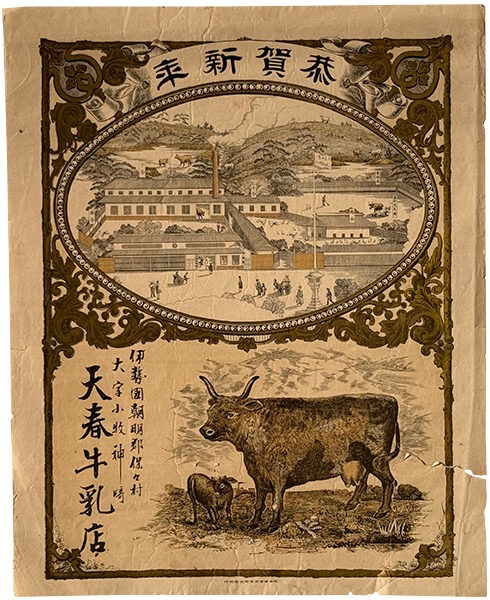 恭賀新年
伊勢國朝明郡保々村
大字小牧神崎
天春牛乳店